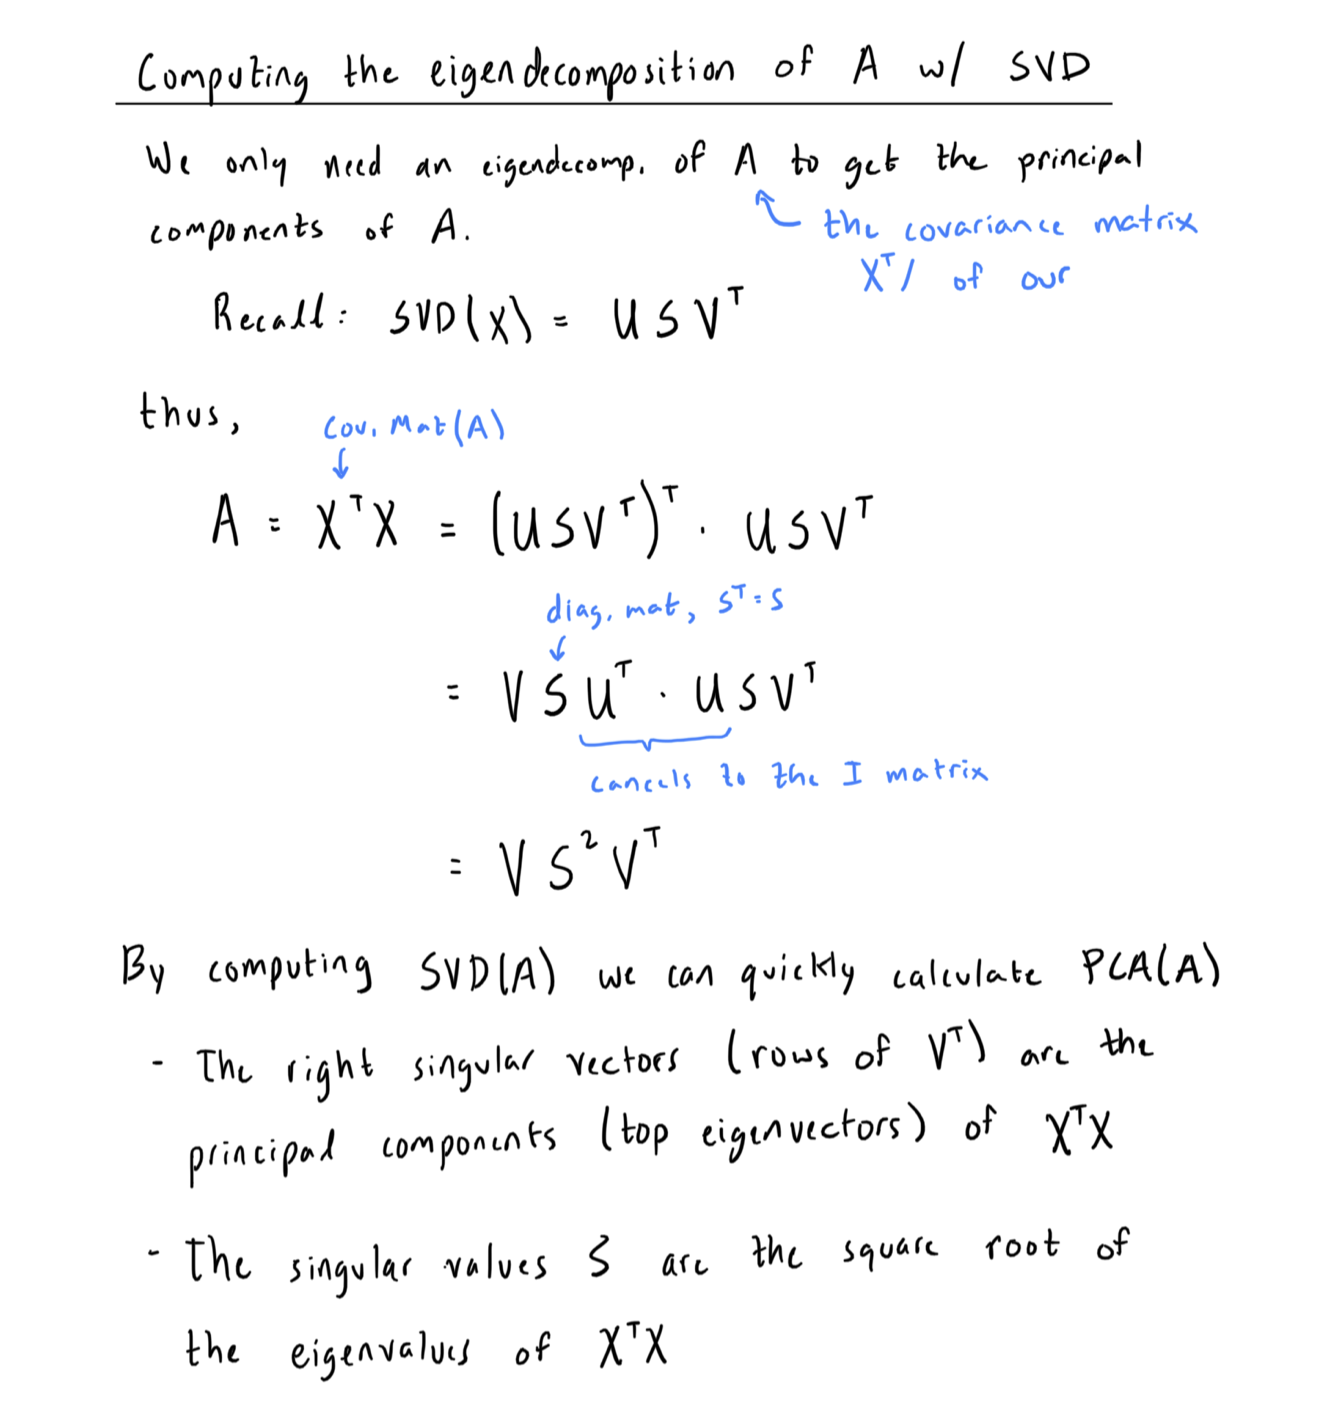 Computing the eigendecomposition of A w/ SVD
We only need an eigendecomp. of A to get the principal
components of A.
the covariance matrix
Xᵀ/ of our
Recall: SVD(X) = U S Vᵀ
thus,
Cov. Mat(A)
A = XᵀX = (USVᵀ)ᵀ · USVᵀ
diag. mat, Sᵀ=S
= V S Uᵀ · U S Vᵀ
cancels to the I matrix
= V S² Vᵀ
By computing SVD(A) we can quickly calculate PCA(A)
- The right singular vectors (rows of Vᵀ) are the
principal components (top eigenvectors) of XᵀX
- The singular values S are the square root of
the eigenvalues of XᵀX